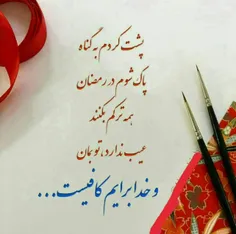 پشت کردم به گناه
پاک شوم در رمضان
همه ترکم بکنند
عیب ندارد، تو بمان
و خدا برایم کافیست...